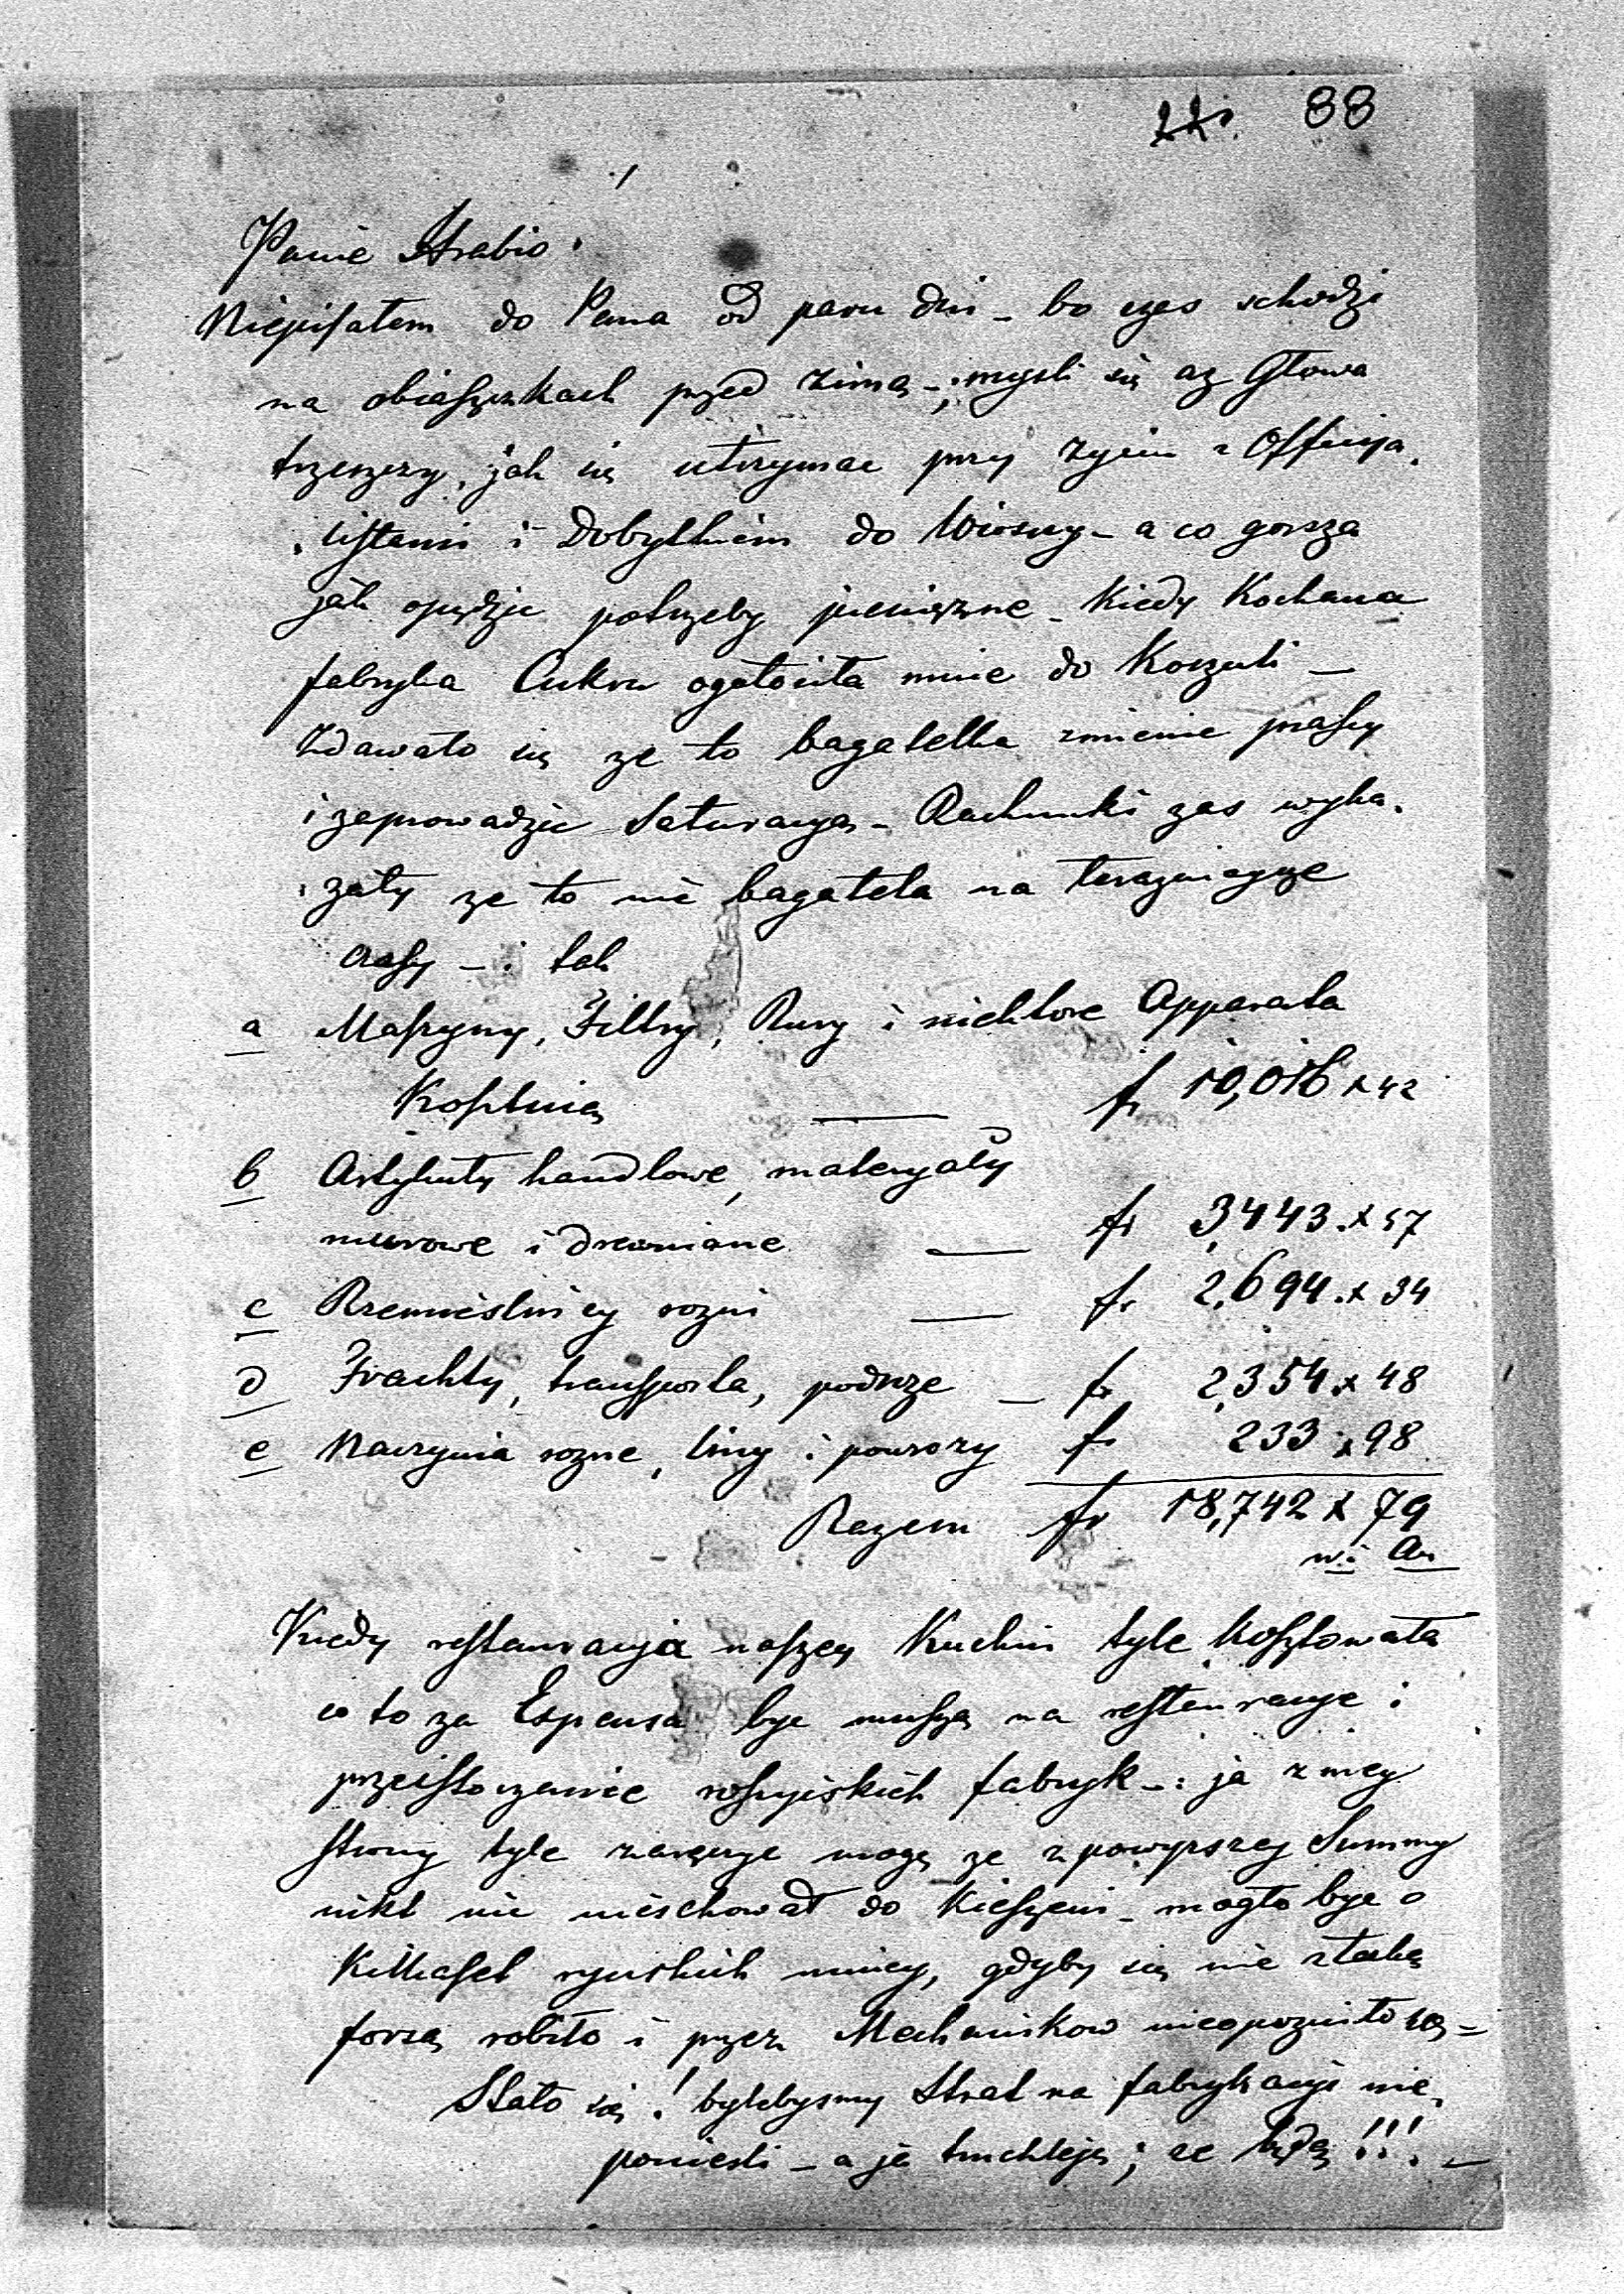 88
Panie Hrabio.
Niepisałem do Pana od paru dni – bo czas schodzi
na obiaszkach przed zimą –; mysli się az Głowa
trzeszczy, jak się utrzymac przy zyciu z Officya.
listami i Dobytkiem do Wiosny – a co gorsza
jak opędzic potrzeby pieniężne – Kiedy Kochana
fabryka Cukru ogołociła mnie do Koszuli –
Zdawało się ze to bagatelka zmienic prassy
i zaprowadzic Saturacyą – Rachunki zas wyka.
zały ze to nie bagatela na terazniejsze
czasy – i tak
a Maszyny, Filtry, Rury i niektore Apparata
Kosztuią — fr 10,016 x 42
b Artykuły handlowe, materyały
murowe i drewniane — fr 3,443 . x 57
c Rzemieslnicy rozni — fr 2,694 . x 34
d Frachty, transporta, podroze — fr 2,354 . x 48
e Naczynia rozne, liny i powrozy fr 233 . x 98
Razem fr 18,742 x 79
w. Au.
Kiedy restauracyja naszey Kuchni tyle kosztowała
co to za Expensa byc muszą na restauracye i
przeistoczenie rossyiskich fabryk –: ja z mey
strony tyle zaręczyc mogę ze z powyzszey Summy
nikt nie nieschował do Kieszeni – mogło byc o
Kilkaset rynskich mniey, gdyby się nie z taką
forsą robiło i przez Mechanikow nieopozniło się –
Stało się! bylebysmy Strat na fabrykacyi nie
poniesli – a ja truchleję; ze będą!!! –